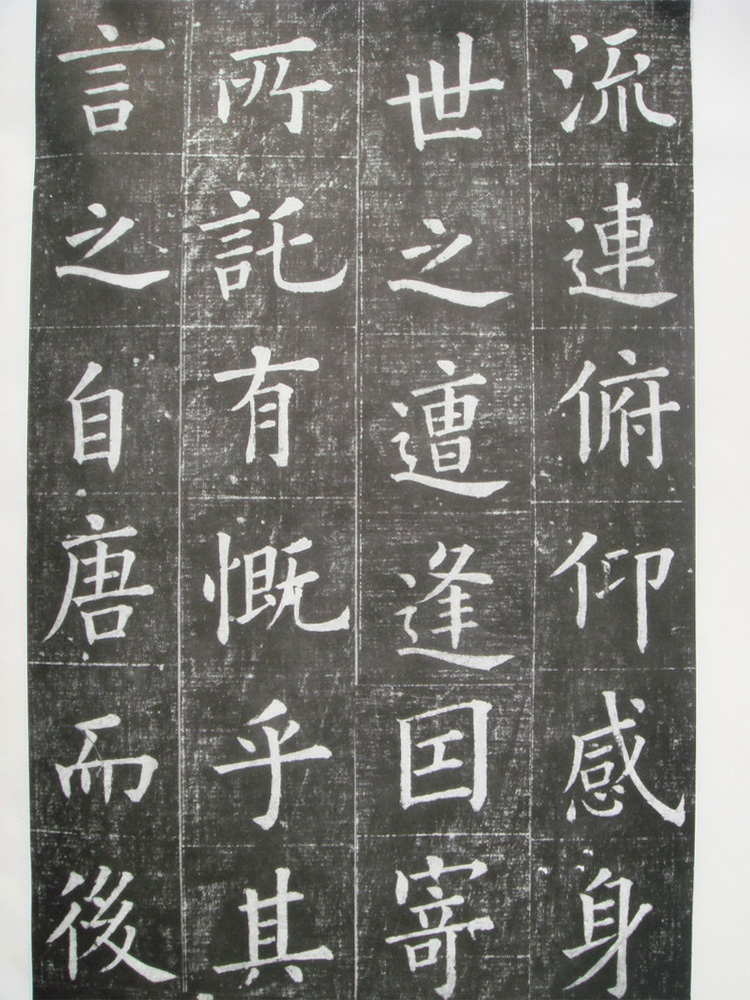 流連俯仰感身
世之遭逢因寄
所託有慨乎其
言之自唐而後